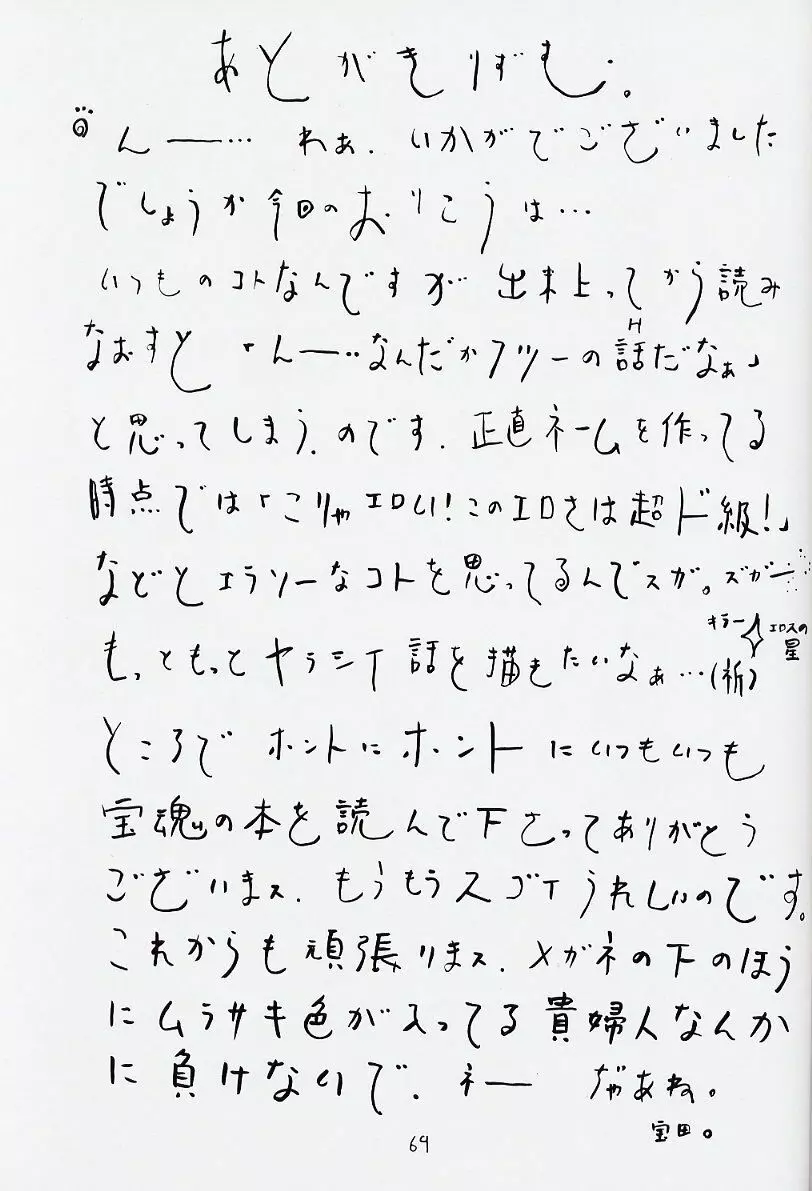 あとがきりずむ。
んー… ねぇ．いかがでございました
でしょうか今回のおりこうは…
いつものコトなんですが 出来上ってから読み
なおすと 「んー…なんだかフツーの話だなぁ」
H
と思ってしまう．のです．正直ネームを作ってる
時点では「こりゃエロい！このエロさは超ド級！」
などとエラソーなコトを思ってるんでスガ。ズガー
キラー エロスの星
もっともっとヤラシイ話を描きたいなぁ…（祈）
ところで ホントにホントにいつもいつも
宝魂の本を読んで下さってありがとう
ございまス．もうもうスゴイうれしいのです。
これからも頑張りまス．メガネの下のほう
にムラサキ色が入ってる貴婦人なんか
に負けないで．ネー ぢゃあね。
宝田。
64